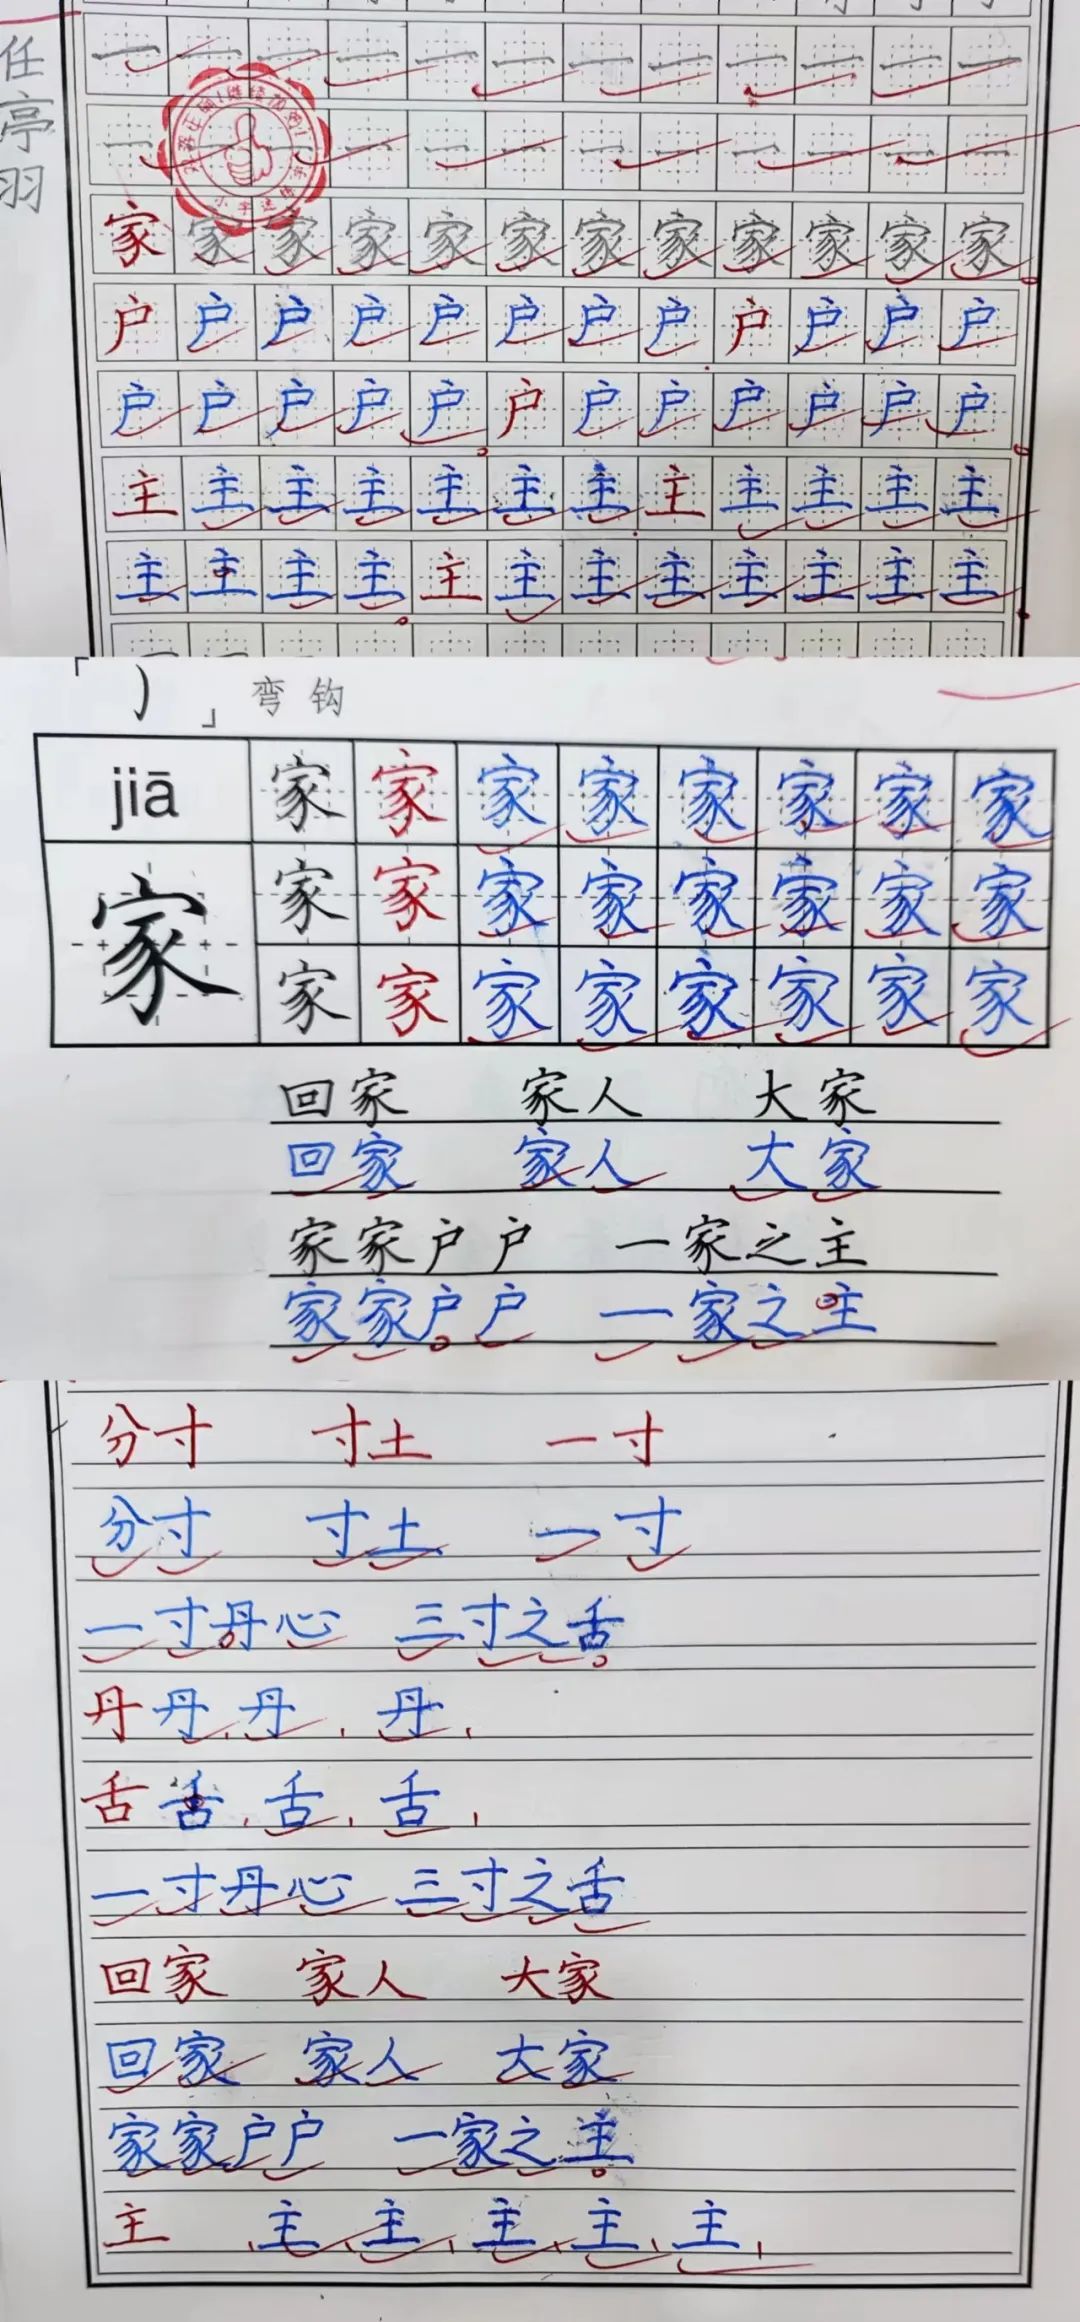 任亭羽
一 一 一 一 一 一 一 一 一 一 一 一
一 一 一 一 一 一 一 一 一 一 一 一
家 家 家 家 家 家 家 家 家 家 家 家
户 户 户 户 户 户 户 户 户 户 户 户
户 户 户 户 户 户 户 户 户 户 户 户
主 主 主 主 主 主 主 主 主 主 主 主
主 主 主 主 主 主 主 主 主 主 主 主
「 ㇁ 」 弯钩
jiā 家 家 家 家 家 家 家 家
家 家 家 家 家 家 家 家 家
家 家 家 家 家 家 家 家
回家 家人 大家
回家 家人 大家
家家户户 一家之主
家家户户 一家之主
分寸 寸土 一寸
分寸 寸土 一寸
一寸丹心 三寸之舌
丹 丹 丹 丹
舌 舌 舌 舌
一寸丹心 三寸之舌
回家 家人 大家
回家 家人 大家
家家户户 一家之主
主 主 主 主 主 主